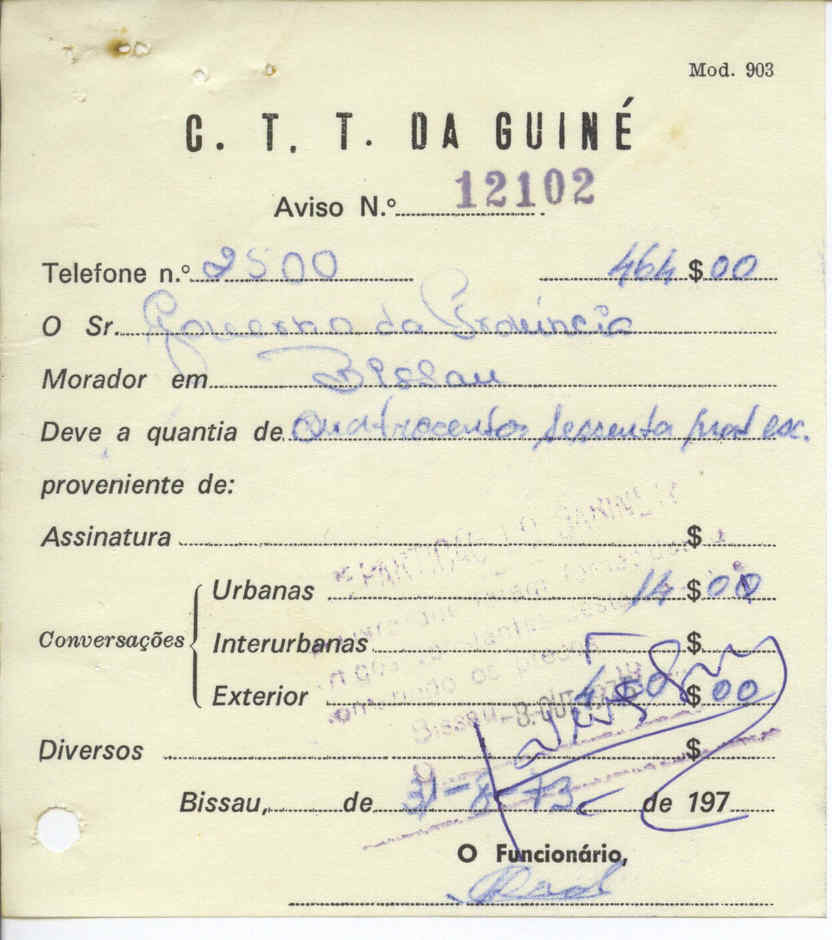 Mod. 903
C. T. T. DA GUINÉ
Aviso N.º 12102
Telefone n.º 2500 464 $ 00
O Sr. Governo da Província
Morador em Bissau
Deve a quantia de quatrocentos sessenta esc.
proveniente de:
Assinatura $
Urbanas 14 $ 00
Conversações Interurbanas $
Exterior 450 $ 00
Diversos $
Bissau, de 31-8-73 de 197
O Funcionário,